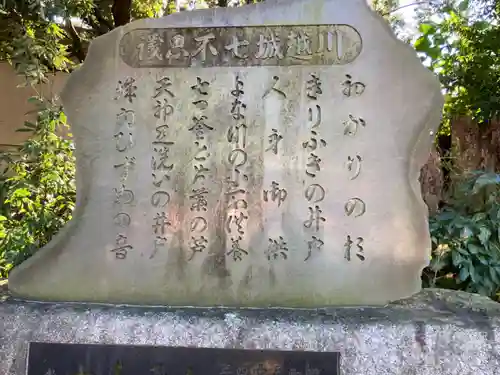 川越城七不思議
初かりの杉
きりふきの井戸
人身御供
よな川の小石供養
七つ釜と片葉の芦
天神足洗いの井戸
城中ひづめの音